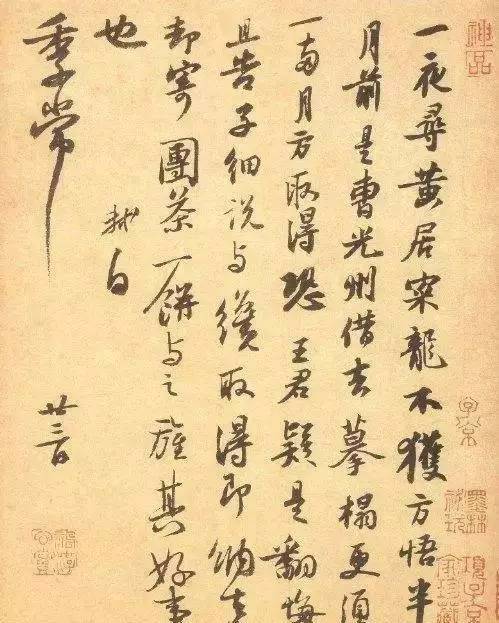 一夜尋黄居寀龍不獲方悟半
月前是曹光州借去摹搨更須
一兩月方取得恐王君疑是翻悔
且告子細說与纔取得即納去
却寄團茶一餅与之旌其好事
也
軾白
季常
廿三日
神品
子京